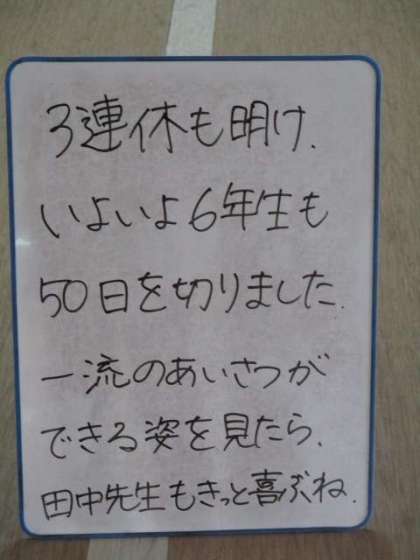 3連休も明け、
いよいよ6年生も
50日を切りました。
一流のあいさつが
できる姿を見たら、
田中先生もきっと喜ぶね。